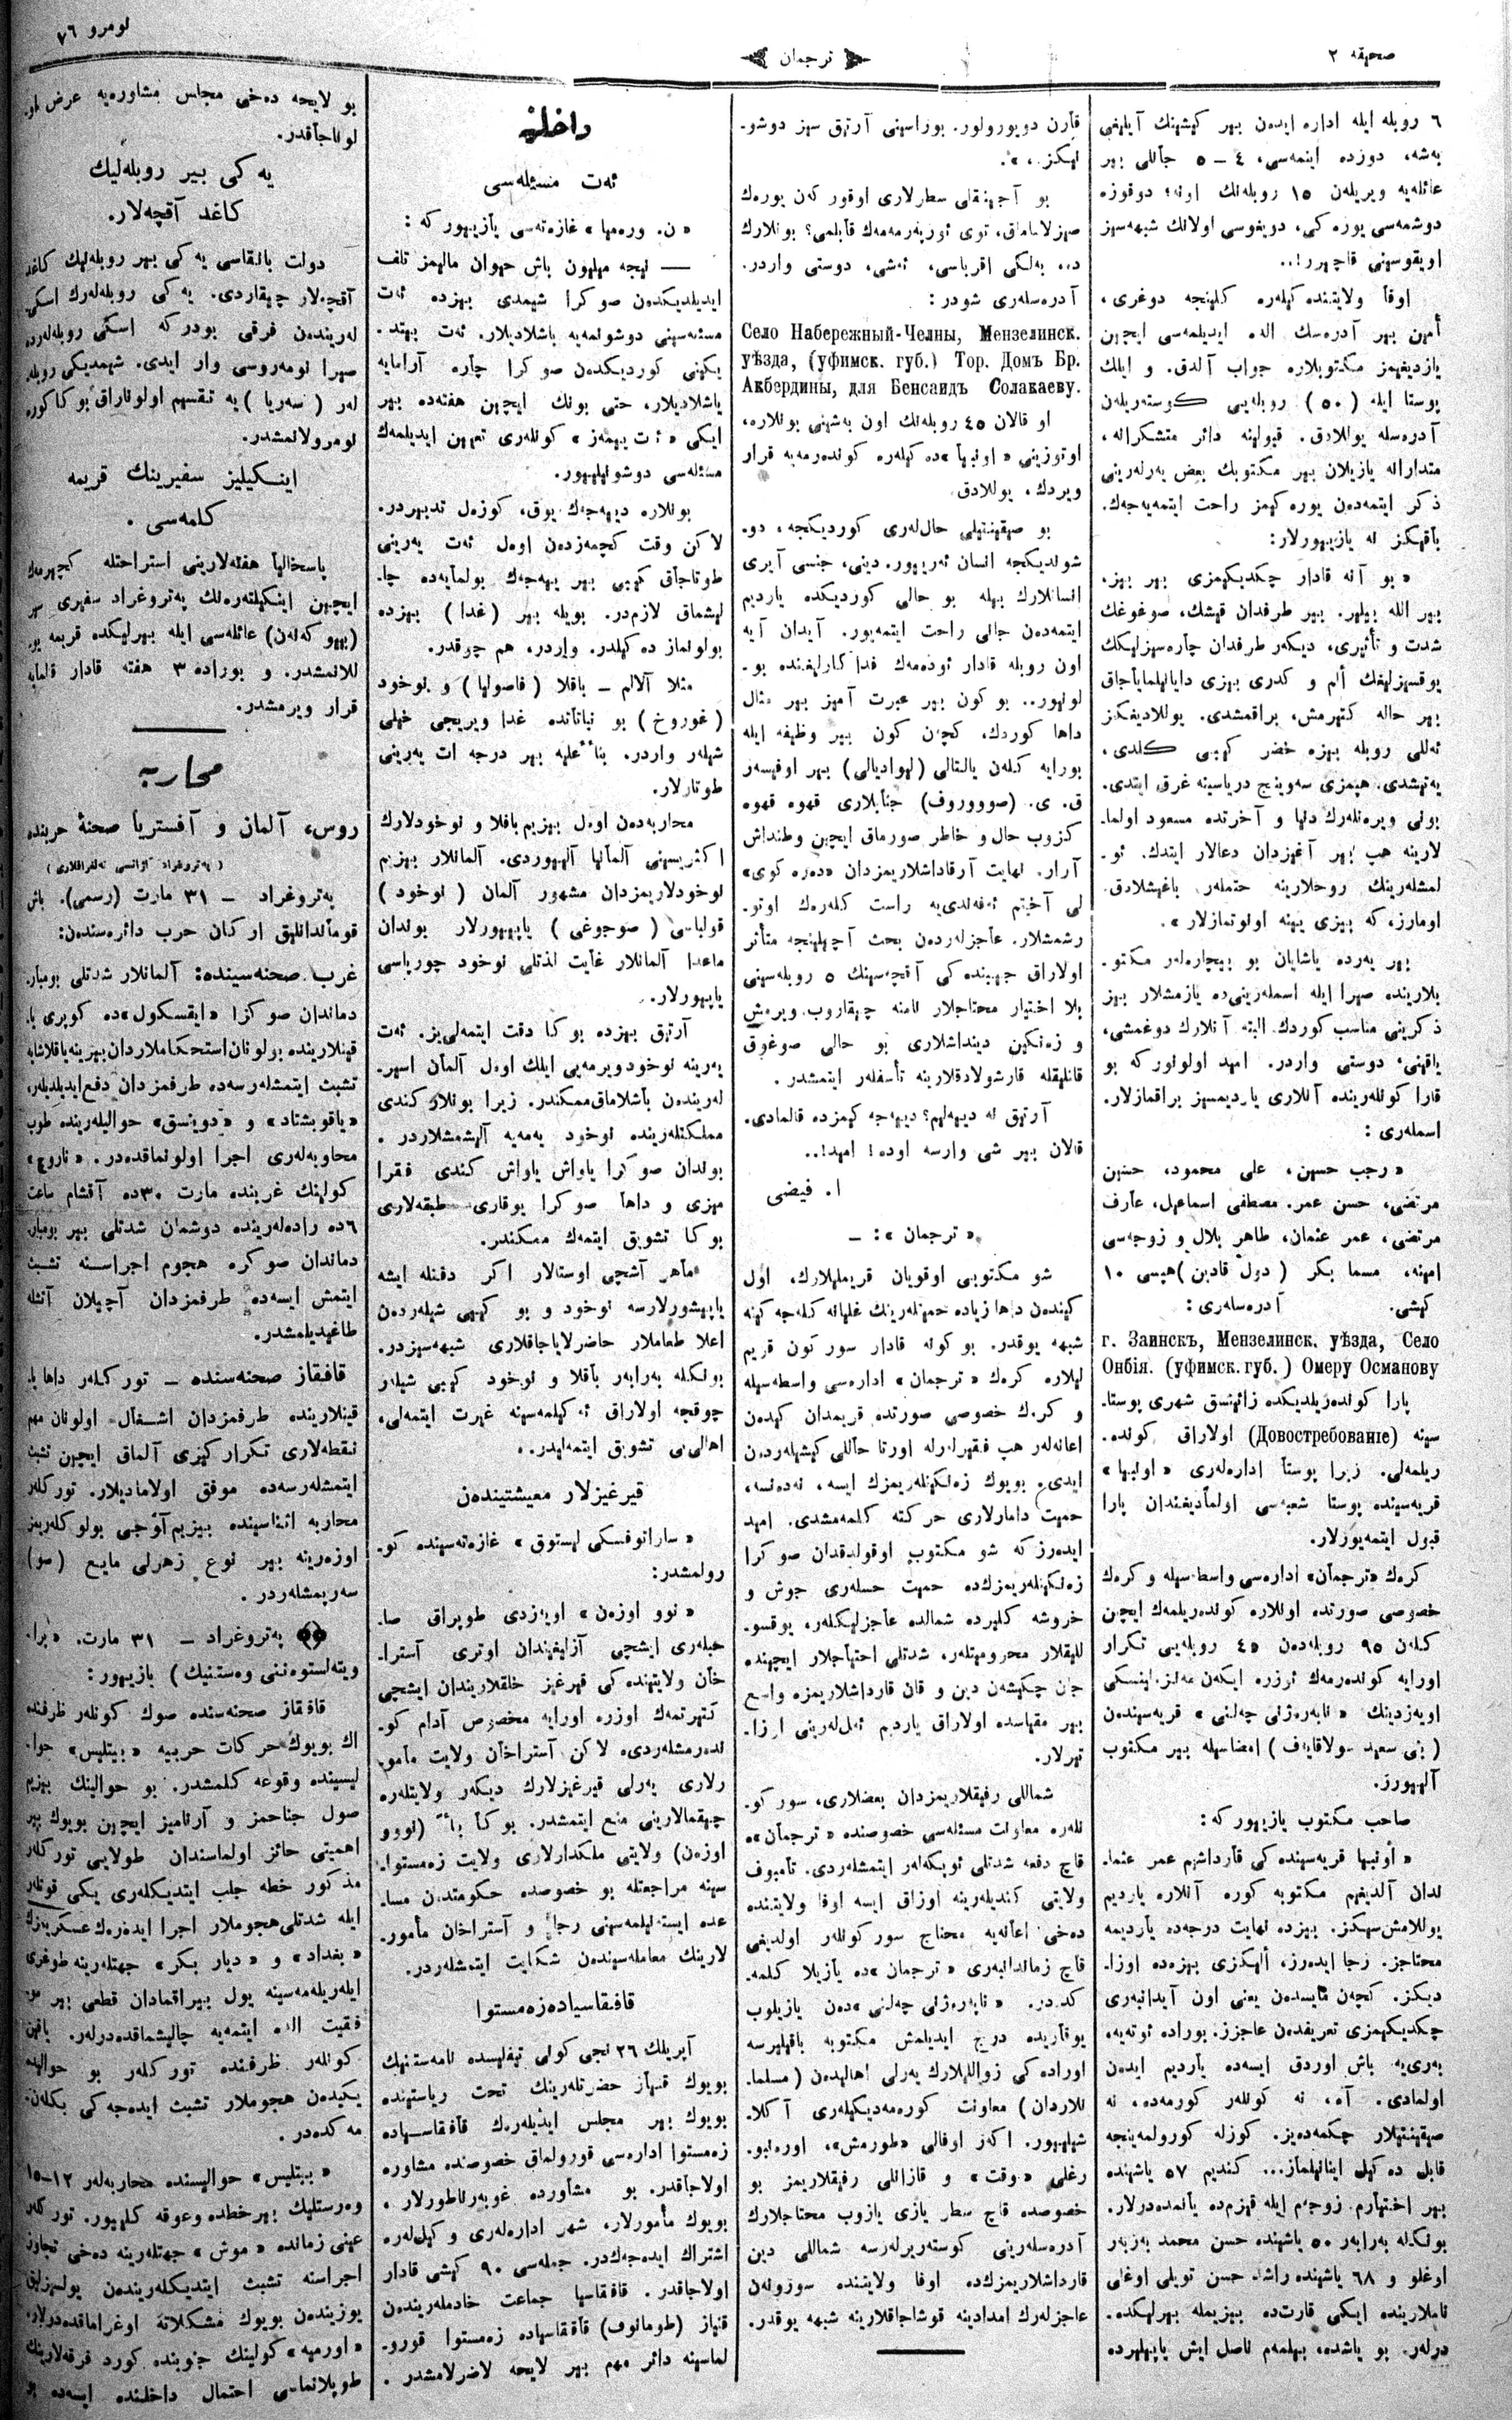 صحیفه ٢
ترجمان
نومرو ٧٦
٦ روبله ایله اداره ایدەن بیر کیشینڭ آیلیغی
بەشە، دوزده اینمەسی، ٤ – ٥ جانلی بیر
عائلەیه ویریلەن ١٥ روبلەنڭ اونە؛ دوقوزه
دوشمەسی یورەکی، دویغوسی اولانڭ شبهەسیز
اویقوسینی قاچیرر!..
اوفا ولایتنده کیلەره کلینجه دوغری،
أمین بیر آدرەسڭ الدە ایدیلمەسی ایچین
یازدیغیمز مکتوبلاره جواب آلدق. و ایلك
پوستا ایله (٥٠) روبلەیی کوستەریلەن
آدرەسلە یوللادق. قبولینه دائر متشکرانه،
متدارانه یازیلان بیر مکتوبڭ بعض یەرلەرینی
ذکر ایتمەدەن یورەکیمز راحت ایتمەیەجەك.
باقیڭز نە یازییورلار:
« بو آنە قادار چکدیکیمزی بیر بیز،
بیر الله بیلیر. بیر طرفدان قیشڭ، صوغوغڭ
شدت و تأثیری، دیکەر طرفدان چارەسیزلیکڭ
یوقسزلیغڭ ألم و کدری بیزی دایانیلمایاجاق
بیر حاله کتیرمش، براقمشدی. یوللادیغڭز
ئەللی روبله بیزه خضر کیبی کلدی،
یەتیشدی. هیمزی سەوینج دریاسینه غرق ایتدی.
بونی ویرەنلەرڭ دنیا و آخرتده مسعود اولما-
لارینه هپ بیر آغیزدان دعالار ایتدك. ئو-
لمشلەرینڭ روحلارینه ختملەر باغیشلادق.
اومارز، که بیزی ینه اونوتمازلار ».
بیر یەرده یاشایان بو بیچارەلەر مکتو-
بلارینده صیرا ایله اسملەرینیده یازمشلار بیز
ذکرینی مناسب کوردك. البته آنلارڭ دوغمشی،
یاقینی، دوستی واردر. امید اولونور که بو
قارا کونلەرینده آنلاری یاردیمسیز براقمازلار.
اسملەری :
« رجب حسین، علی محمود، حسین
مرتضی، حسن عمر. مصطفی اسماعیل، عارف
مرتضی، عمر عثمان، طاهر بلال و زوجەسی
امینه، مسما بکر ( دول قادین ) هپسی ١٠
کیشی. آدرەسلەری :
г. Заинскъ, Мензелинск. уѣзда, Село
Онбія. (уфимск. губ. ) Омеру Османову
پارا کوندەریلدیکده زائینسق شهری پوستا-
سینه (Довостребованіе) اولاراق کوندە-
ریلمەلی. زیرا پوستا ادارەلەری « اونبیا »
قریەسینده پوستا شعبەسی اولمادیغندان پارا
قبول ایتمەیورلار.
کرەك «ترجمان» ادارەسی واسطەسیله و کرەك
خصوصی صورتده اونلاره کوندەریلمەك ایچین
کلەن ٩٥ روبلەدەن ٤٥ روبلەیی تکرار
اورایه کوندەرمەك ئوزره ایکەن مەنزەلینسکی
اویەزدینڭ « نابەرەژنی چەلنی » قریەسیندەن
( بنی سعید سولاقایف ) امضاسیله بیر مکتوب
آلییورز.
صاحب مکتوب یازییور که :
« أونبیا قریەسینده کی قارداشیم عمر عثما-
ندان آلدیغیم مکتوبه کوره آنلاره یاردیم
یوللامش سیڭز. بیزده نهایت درجەده یاردیمه
محتاجز. رجا ایدەرز، ألیڭزی بیزەده اوزا-
دیڭز. کچەن مایسدەن یعنی اون آیدانبەری
چکدیکیمزی تعریفدەن عاجزز. بوراده ئوتەیه،
بەری‌یه باش اوردق ایسەده یاردیم ایدەن
اولمادی. آه، نە کونلەر کورمەده، نە
صیقینتیلار چکمەدەیز. کوزله کورولمەینجه
قابل دەکیل اینانیلماز... کندیم ٥٧ یاشنده
بیر اختیارم. زوجەم ایله قیزمده یانمدەدرلار.
بونکله بەرابەر ٥٠ یاشینده حسن محمد بەربەر
اوغلو و ٦٨ یاشینده راشد حسن تویلی اوغلی
ناملارینده ایکی قارت‌ده بیزیمله بیرلیکدە-
درلەر. بو یاشده، بیلمەم ناصل ایش یاپیلیرده
قارن دویورولور. بوراسینی آرتق سیز دوشو-
نیڭز.. ».
بو آجینقلی سطرلاری اوقور کەن یورەك
صیزلاماماق، توی ئورپەرمەمەك قابلمی؟ بونلارڭ
دە، بەلکی اقرباسی، ئەشی، دوستی واردر.
آدرەسلەری شودر :
Село Набережный-Челны, Мензелинск.
уѣзда, (уфимск. губ.) Тор. Домъ Бр.
Акбердины, для Бенсаидъ Солакаеву.
او قالان ٤٥ روبلەنڭ اون بەشینی بونلاره،
اوتوزینی « اونبیا »ده کیلەره کوندەرمەیه قرار
ویردك، یوللادق.
بو صیقینتیلی حال‌لەری کوردیکجه، دو-
شوندیکجه انسان ئەرییور. دینی، جنسی آیری
انسانلارڭ بیله بو حالی کوردیکده یاردیم
ایتمەدەن جانی راحت ایتمەیور. آیدان آیه
اون روبله قادار ئودەمەك فداکارلیغنده بو-
لونیور.. بو کون بیر عبرت آمیز بیر مثال
داها کوردك. کچەن کون بیر وظیفه ایله
بورایه کلەن یالتالی (لیوادیالی) بیر اوفیسەر
ق. ی. (صووروف) جنابلاری قهوه قهوه
کزوب حال و خاطر صورماق ایچین وطنداش
آرار. نهایت آرقاداشلاریمزدان «دەره کوی»
لی آختم ئەفەندی‌یه راست کلەرەك اوتو-
رشمشلار. عاجزلەردەن بحث آچیلینجه متأثر
اولاراق جیبنده کی آقچەسینڭ ٥ روبلەسینی
بلا اختیار محتاجلار نامنه چیقاروب ویرمش
و زەنکین دینداشلاری بو حالی صوغوق
قانلیقله قارشولادقلارینه تأسفلەر ایتمشدر.
آرتق نە دیەلیم؟ دیەجەکیمزده قالمادی.
قالان بیر شی وارسه اوده! امید!..
ا. فیضی
« ترجمان »: –
شو مکتوبی اوقویان قریملیلارڭ، اول
کیندەن داها زیاده حمیتلەرینڭ غلیانه کلەجەکینه
شبهه یوقدر. بو کونه قادار سورکون قریم
لیلاره کرەك « ترجمان » ادارەسی واسطەسیله
و کرەك خصوصی صورتده قریمدان کیدەن
اعانەلەر هپ فقیرلەرله اورتا حاللی کیشیلەردەن
ایدی. بویوك زەنکینلەریمزڭ ایسه، نەدەنسه،
حمیت دامارلاری حرکته کلمەمشدی. امید
ایدەرز که شو مکتوب اوقوندقدان صوکرا
زەنکینلەریمزڭ‌ده حمیت حسلەری جوش و
خروشه کلیرده شمالده عاجزلیکلەر، یوقسو-
للیقلار محرومیتلەر، شدتلی احتیاجلار ایچینده
جان چکیشەن دین و قان قارداشلاریمزه واسع
بیر مقیاسده اولاراق یاردیم ئەل‌لەرینی اوزا-
تیرلار.
شماللی رفیقلاریمزدان بعضلاری، سورکو-
نلەره معاونت مسئلەسی خصوصنده « ترجمان »ه
قاچ دفعه شدتلی ئوپکەلەر ایتمشلەردی. تامبوف
ولایتی کندیلەرینه اوزاق ایسه اوفا ولایتنده
دەخی اعانەیه محتاج سورکونلەر اولدیغی
قاچ زماندانبەری « ترجمان »ده یازیلا کلمە-
کدەدر. « نابەرەژنی چەلنی »دەن یازیلوب
یوقاریده درج ایدیلمش مکتوبه باقیلیرسه
اوراده کی زواللیلارڭ یەرلی اهالیدەن (مسلما-
نلاردان) معاونت کورەمەدیکیلەری آڭلا-
شیلییور. اکەر اوفالی «طورمش»، اورەنبو-
رغلی « وقت » و قازانلی رفیقلاریمز بو
خصوصده قاچ سطر یازی یازوب محتاجلارڭ
آدرەسلەرینی کوستەریرلەرسه شماللی دین
قارداشلاریمزڭ‌ده اوفا ولایتنده سورونەن
عاجزلەرڭ امدادینه قوشاجاقلارینه شبهه یوقدر.
داخلیه
ئەت مسئلەسی
« ن. ورەمیا » غازەتەسی یازییور که :
— نیجه میلیون باش حیوان مالیمز تلف
ایدیلدیکدەن صوکرا شیمدی بیزده ئەت
مسئلەسینی دوشونمەیه باشلادیلار. ئەت بیتد-
یکینی کوردیکدەن صوکرا چاره آرامایه
باشلادیلار، حتی بونڭ ایچین هفتەده بیر
ایکی « ئەت ییمەز » کونلەری تعیین ایدیلمەك
مسئلەسی دوشونیلییور.
بونلاره دیەجەك یوق، کوزەل تدبیردر.
لاکن وقت کچمەزدەن اوەل ئەت یەرینی
طوتاجاق کیبی بیر ییەجەك بولمایەده چا-
لیشماق لازم‌در. بویله بیر (غدا) بیزده
بولونماز دەکیلدر. واردر، هم چوقدر.
مثلا آلالم – باقلا (فاصولیا) و نوخود
(غوروخ) بو نباتاتده غدا ویریجی خیلی
شیلەر واردر. بناءً علیه بیر درجه ات یەرینی
طوتارلار.
محاربەدەن اوەل بیزیم باقلا و نوخودلارڭ
اکثریسینی آلمانیا آلییوردی. آلمانلار بیزیم
نوخودلاریمزدان مشهور آلمان (نوخود)
قولباسی (صوجوغی) یاپییورلار بوندان
ماعدا آلمانلار غایت لذتلی نوخود چورباسی
یاپییورلار.
آرتق بیزده بوکا دقت ایتمەلی‌یز. ئەت
یەرینه نوخود ویرمەیی ایلك اوەل آلمان اسیر-
لەریندەن باشلاماق ممکندر. زیرا بونلار کندی
مملکتلەرینده نوخود یەمەیه آلیشمشلاردر.
بوندان صوکرا یاواش یاواش کندی فقرا
میزی و داها صوکرا یوقاری طبقەلاری
بوکا تشویق ایتمەك ممکندر.
ماهر آشچی اوستالار اکر دقتله ایشه
یاپیشورلارسه نوخود و بو کیبی شیلەردەن
اعلا طعاملار حاضرلایاجاقلاری شبهەسیزدر.
بونکله بەرابەر باقلا و نوخود کیبی شیلەر
چوقجه اولاراق ئەکیلمەسینه غیرت ایتمەلی،
اهالی‌یی تشویق ایتمەلیدر.»
قیرغیزلار معیشتیندەن
« ساراتوفسکی لیستوق » غازەتەسینده کو-
رولمشدر:
« نوو اوزەن » اویەزدی طوپراق صا-
حبلەری ایشچی آزلیغیندان اوتری آسترا-
خان ولایتینده کی قیرغیز خلقلاریندان ایشچی
کتیرتمەك اوزره اورایه مخصوص آدام کو-
ندەرمشلەردی. لاکن آستراخان ولایت مأمو-
رلاری یەرلی قیرغیزلارڭ دیکەر ولایتلەره
چیقمالارینی منع ایتمشدر. بوکا بناءً (نووو
اوزەن) ولایتی ملکدارلاری ولایت زەمستوا-
سینه مراجعتله بو خصوصده حکومتدەن مسا-
عده ایستەنیلمەسینی رجا و آستراخان مأمور-
لارینڭ معاملەسیندەن شکایت ایتمشلەردر.
قافقاسیاده زەمستوا
آپریلڭ ٢٦ نجی کونی تیفلیسده نامەستنیك
بویوك قنیاز حضرتلەرینڭ تحت ریاستینده
بویوك بیر مجلس ایدیلەرەك قافقاسیاده
زەمستوا ادارەسی قورولماق خصوصنده مشاوره
اولاجاقدر. بو مشاورەده غوبەرناطورلار،
بویوك مأمورلار، شهر ادارەلەری و کیل‌لەره
اشتراك ایدەجەك‌در. جملەسی ٩٠ کیشی قادار
اولاجاقدر. قافقاسیا جماعت خادملەریندەن
قنیاز (طومانوف) قافقاسیاده زەمستوا قورو-
لماسینه دائر مهم بیر لایحه حاضرلامشدر.
بو لایحه دەخی مجلس مشاورەیه عرض او-
لوناجاقدر.
یەکی بیر روبلەلیڭ
کاغد آقچەلار.
دولت بانقاسی یەکی بیر روبلەلیك کاغد
آقچەلار چیقاردی. یەکی روبلەلەرڭ اسکی
لەریندەن فرقی بودر که اسکی روبلەلەرده
صیرا نومەروسی وار ایدی. شیمدیکی روبله
لەر (سەریا) یه تقسیم اولوناراق بوکا کوره
نومرولانمشدر.
اینکیلیز سفیرینڭ قریمه
کلمەسی.
پاسخالیا هفتەلارینی استراحتله کچیرمەك
ایچین اینکیلتەرەنڭ پەتروغراد سفیری سر
(بیوکەنەن) عائلەسی ایله بیرلیکده قریمه یو-
للانمشدر. و بوراده ٣ هفته قادار قالمایه
قرار ویرمشدر.
محاربه
روس، آلمان و آفستریا صحنۀ حربنده
( پەتروغراد آژانسی تەلغرافلاری )
پەتروغراد – ٣١ مارت (رسمی). باش
قوماندانلیق ارکان حرب دائرەسندەن:
غرب صحنەسینده: آلمانلار شدتلی بومبار-
دماندان صوکرا «ایقسکول»ده کوپری یا-
قینلارینده بولونان استحکاملاردان بیزینه یاقلاشمایه
تشبث ایتمشلەرسه‌ده طرفمزدان دفع ایدیلدیلەر.
«یاقوبشتاد» و «دوینسق» حوالیلەرینده طوپ
محاربەلەری اجرا اولونماقدەدر. «ناروچ»
کولینڭ غربنده مارت ٣٠ده آقشام ساعت
٦ده رادەلەرینده دوشمان شدتلی بیر بومبار-
دماندان صوکره هجوم اجراسنه تشبث
ایتمش ایسه‌ده طرفمزدان آچیلان آتشله
طاغیدیلمشدر.
قافقاز صحنەسنده – تورکلەر داها یا-
قینلارینده طرفمزدان اشغال اولونان مهم
نقطەلاری تکرار کیری آلماق ایچین تشبث
ایتمشلەرسه‌ده موفق اولامادیلار. تورکلەر
محاربه اثناسینده بیزیم آوجی بولوکلەریمز
اوزەرینه بیر نوع زهرلی مایع (صو)
سەرپمشلەردر.
پەتروغراد – ٣١ مارت. «پرا-
ویتەلستوەننی وەستنیك) یازییور:
قافقاز صحنەسنده صوڭ کونلەر ظرفنده
اڭ بویوك حرکات حربیه «بیتلیس» حوا-
لیسینده وقوعه کلمشدر. بو حوالینڭ بیزیم
صول جناحمز و آرتامیز ایچین بویوك بیر
اهمیتی حائز اولماسندان طولایی تورکلەر
مذکور خطه جلب ایتدیکلەری یکی قوتلەر
ایله شدتلی هجوملار اجرا ایدەرەك عسکریمزڭ
« بغداد » و « دیار بکر » جهتلەرینه طوغری
ایلەریلەمەسینه یول بیراقمادان قطعی بیر مو-
فقیت الده ایتمەیه چالیشماقدەدرلەر. یاقین
کونلەر ظرفنده تورکلەر بو حوالیده
یکیدەن هجوملار تشبث ایدەجەکی بکلەن-
مەکدەدر.
« بیتلیس » حوالیسنده محاربەلەر ١٢–١٥
وەرستلیك بیر خطده وقوعه کلییور. تورکلەر
عینی زمانده « موش » جهتلەرینه دەخی تجاوز
اجراسنه تشبث ایتدیکلەریندەن یولسزلیق
یوزیندەن بویوك مشکلاتە اوغراماقدەدرلار.
« اورمیه » کولینڭ جنوبنده کورد فرقەلارینڭ
طوپلانماسی احتمال داخلنده ایسه‌ده